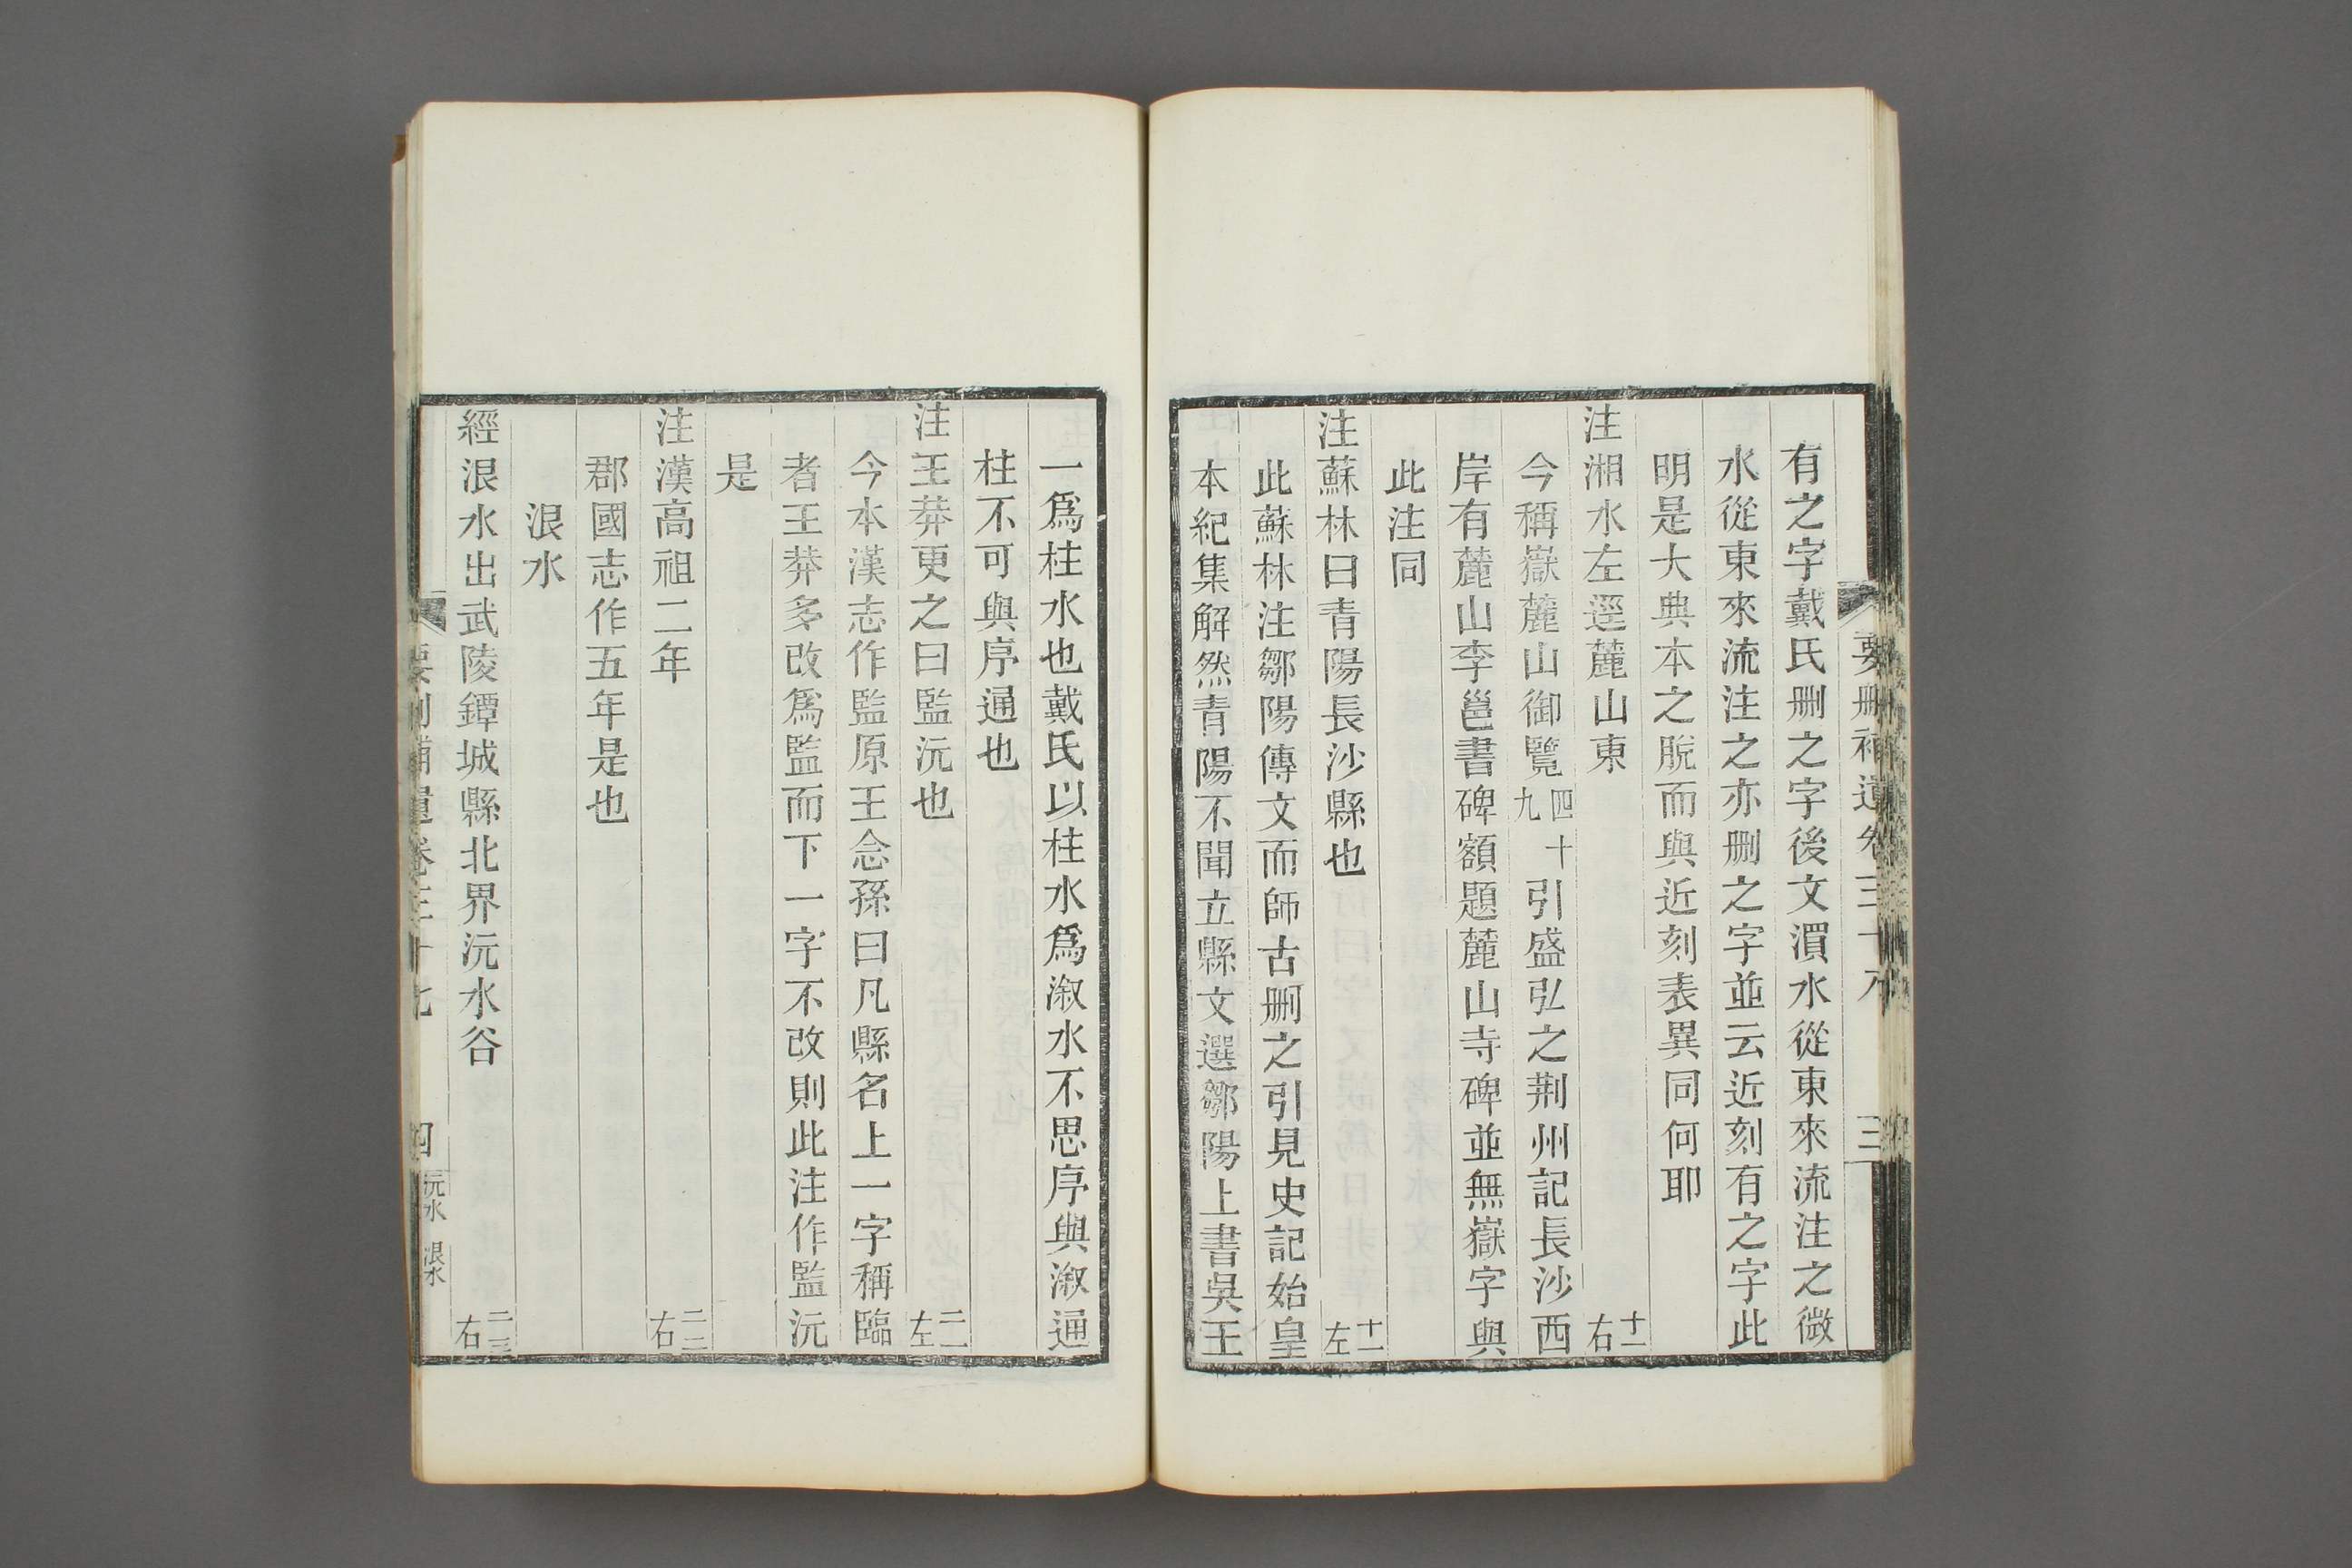 要删補遺卷三十八 三
有之字戴氏删之字後文溳水從東來流注之微
水從東來流注之亦删之字並云近刻有之字此
明是大典本之脫而與近刻表異同何耶
注湘水左逕麓山東 十一右
今稱嶽麓山御覽四十九引盛弘之荆州記長沙西
岸有麓山李邕書碑額題麓山寺碑並無嶽字與
此注同
注蘇林曰青陽長沙縣也 十一左
此蘇林注鄒陽傳文而師古删之引見史記始皇
本紀集解然青陽不聞立縣文選鄒陽上書吳王
一爲柱水也戴氏以柱水爲溆水不思序與溆通
柱不可與序通也
注王莽更之曰監沅也 二一左
今本漢志作監原王念孫曰凡縣名上一字稱臨
者王莽多改爲監而下一字不改則此注作監沅
是
注漢高祖二年 二二右
郡國志作五年是也
浪水
經浪水出武陵鐔城縣北界沅水谷 二三右
要删補遺卷三十七 四 沅水 浪水